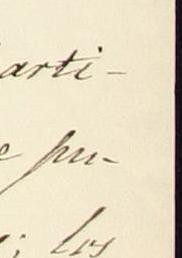 arti-
e pu-
; los